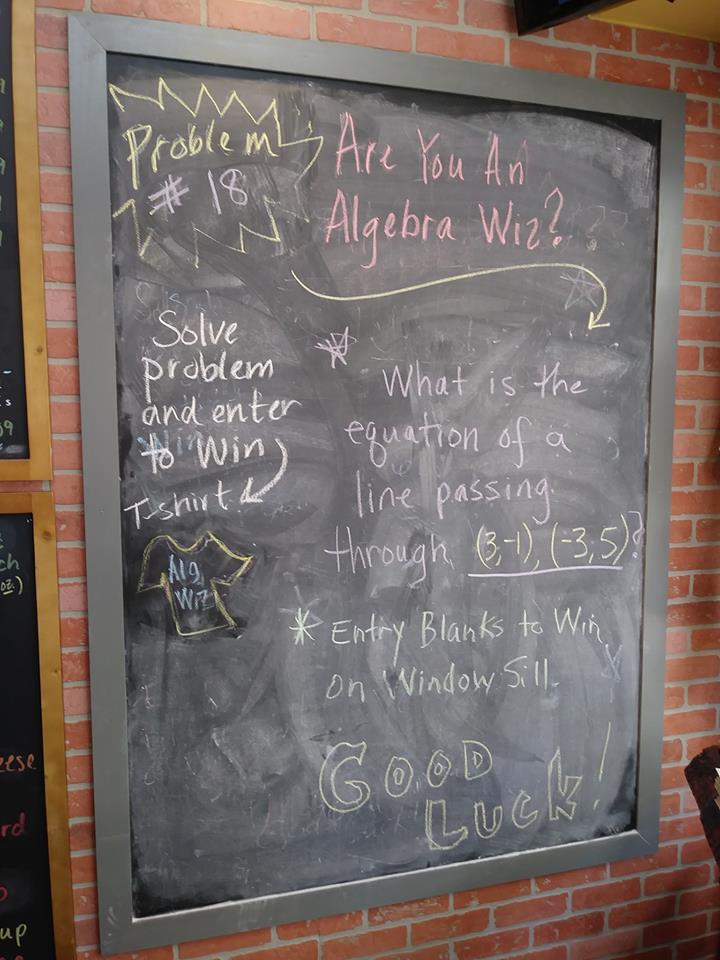 Problem
# 18
Are You An
Algebra Wiz?
Solve
problem
and enter
to Win
T-shirt
Alg
Wiz
What is the
equation of a
line passing
through (3,-1), (-3,5)?
* Entry Blanks to Win
on Window Sill
GOOD
LUCK!
ch
oz.)
eese
rd
up